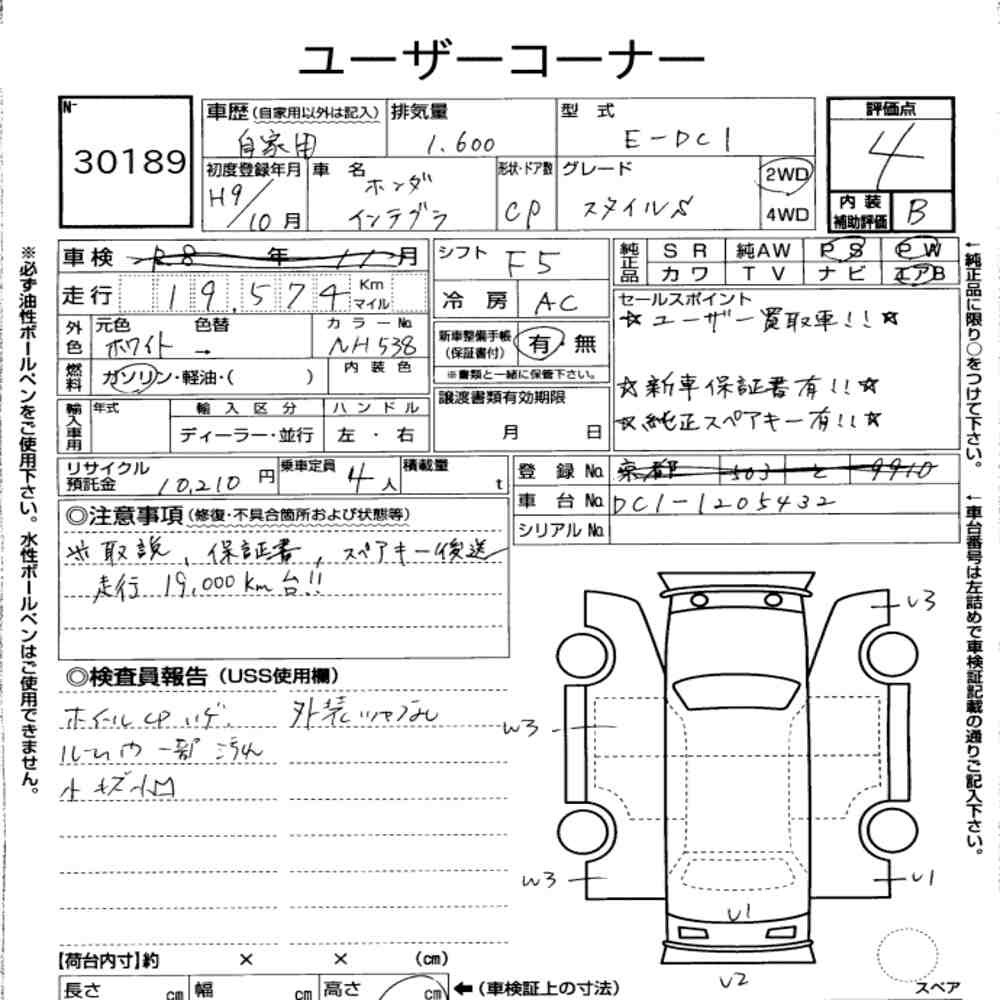 ユーザーコーナー
N-
30189
車歴(自家用以外は記入)
自家用
排気量
1.600
型 式
E-DC1
評価点
4
初度登録年月
H9/10月
車 名
ホンダ
インテグラ
形状・ドア数
CP
グレード
スタイルS
2WD
4WD
内装補助評価
B
車検 R8年11月
走行 19,574 Km マイル
シフト
F5
冷房
AC
純正品
SR 純AW PS PW
カワ TV ナビ エアB
外色
元色 色替
ホワイト →
カラーNo.
NH538
燃料
ガソリン・軽油・( )
内装色
新車整備手帳
(保証書付)
有・無
※書類と一緒に保管下さい。
セールスポイント
☆ユーザー買取車!!☆
☆新車保証書有!!☆
☆純正スペアキー有!!☆
輸入車用
年式
輸入区分
ハンドル
ディーラー・並行
左・右
譲渡書類有効期限
月 日
リサイクル預託金
10,210円
乗車定員
4人
積載量
t
登録No. 京都 503 と 9910
車台No. DC1-1205432
シリアルNo.
◎注意事項(修復・不具合箇所および状態等)
※取説、保証書、スペアキー後送
走行19,000km台!!
◎検査員報告(USS使用欄)
ホイールCPハゲ. 外装シャブなし
ルーム内一部汚れ
小キズ小凹
U3
W3
W3
U1
U1
U2
スペア
【荷台内寸】約 × × (cm)
長さ cm 幅 cm 高さ cm ←(車検証上の寸法)
※必ず油性ボールペンをご使用下さい。水性ボールペンはご使用できません。
←純正品に限り○をつけて下さい。
←車台番号は左詰めで車検証記載の通りご記入下さい。